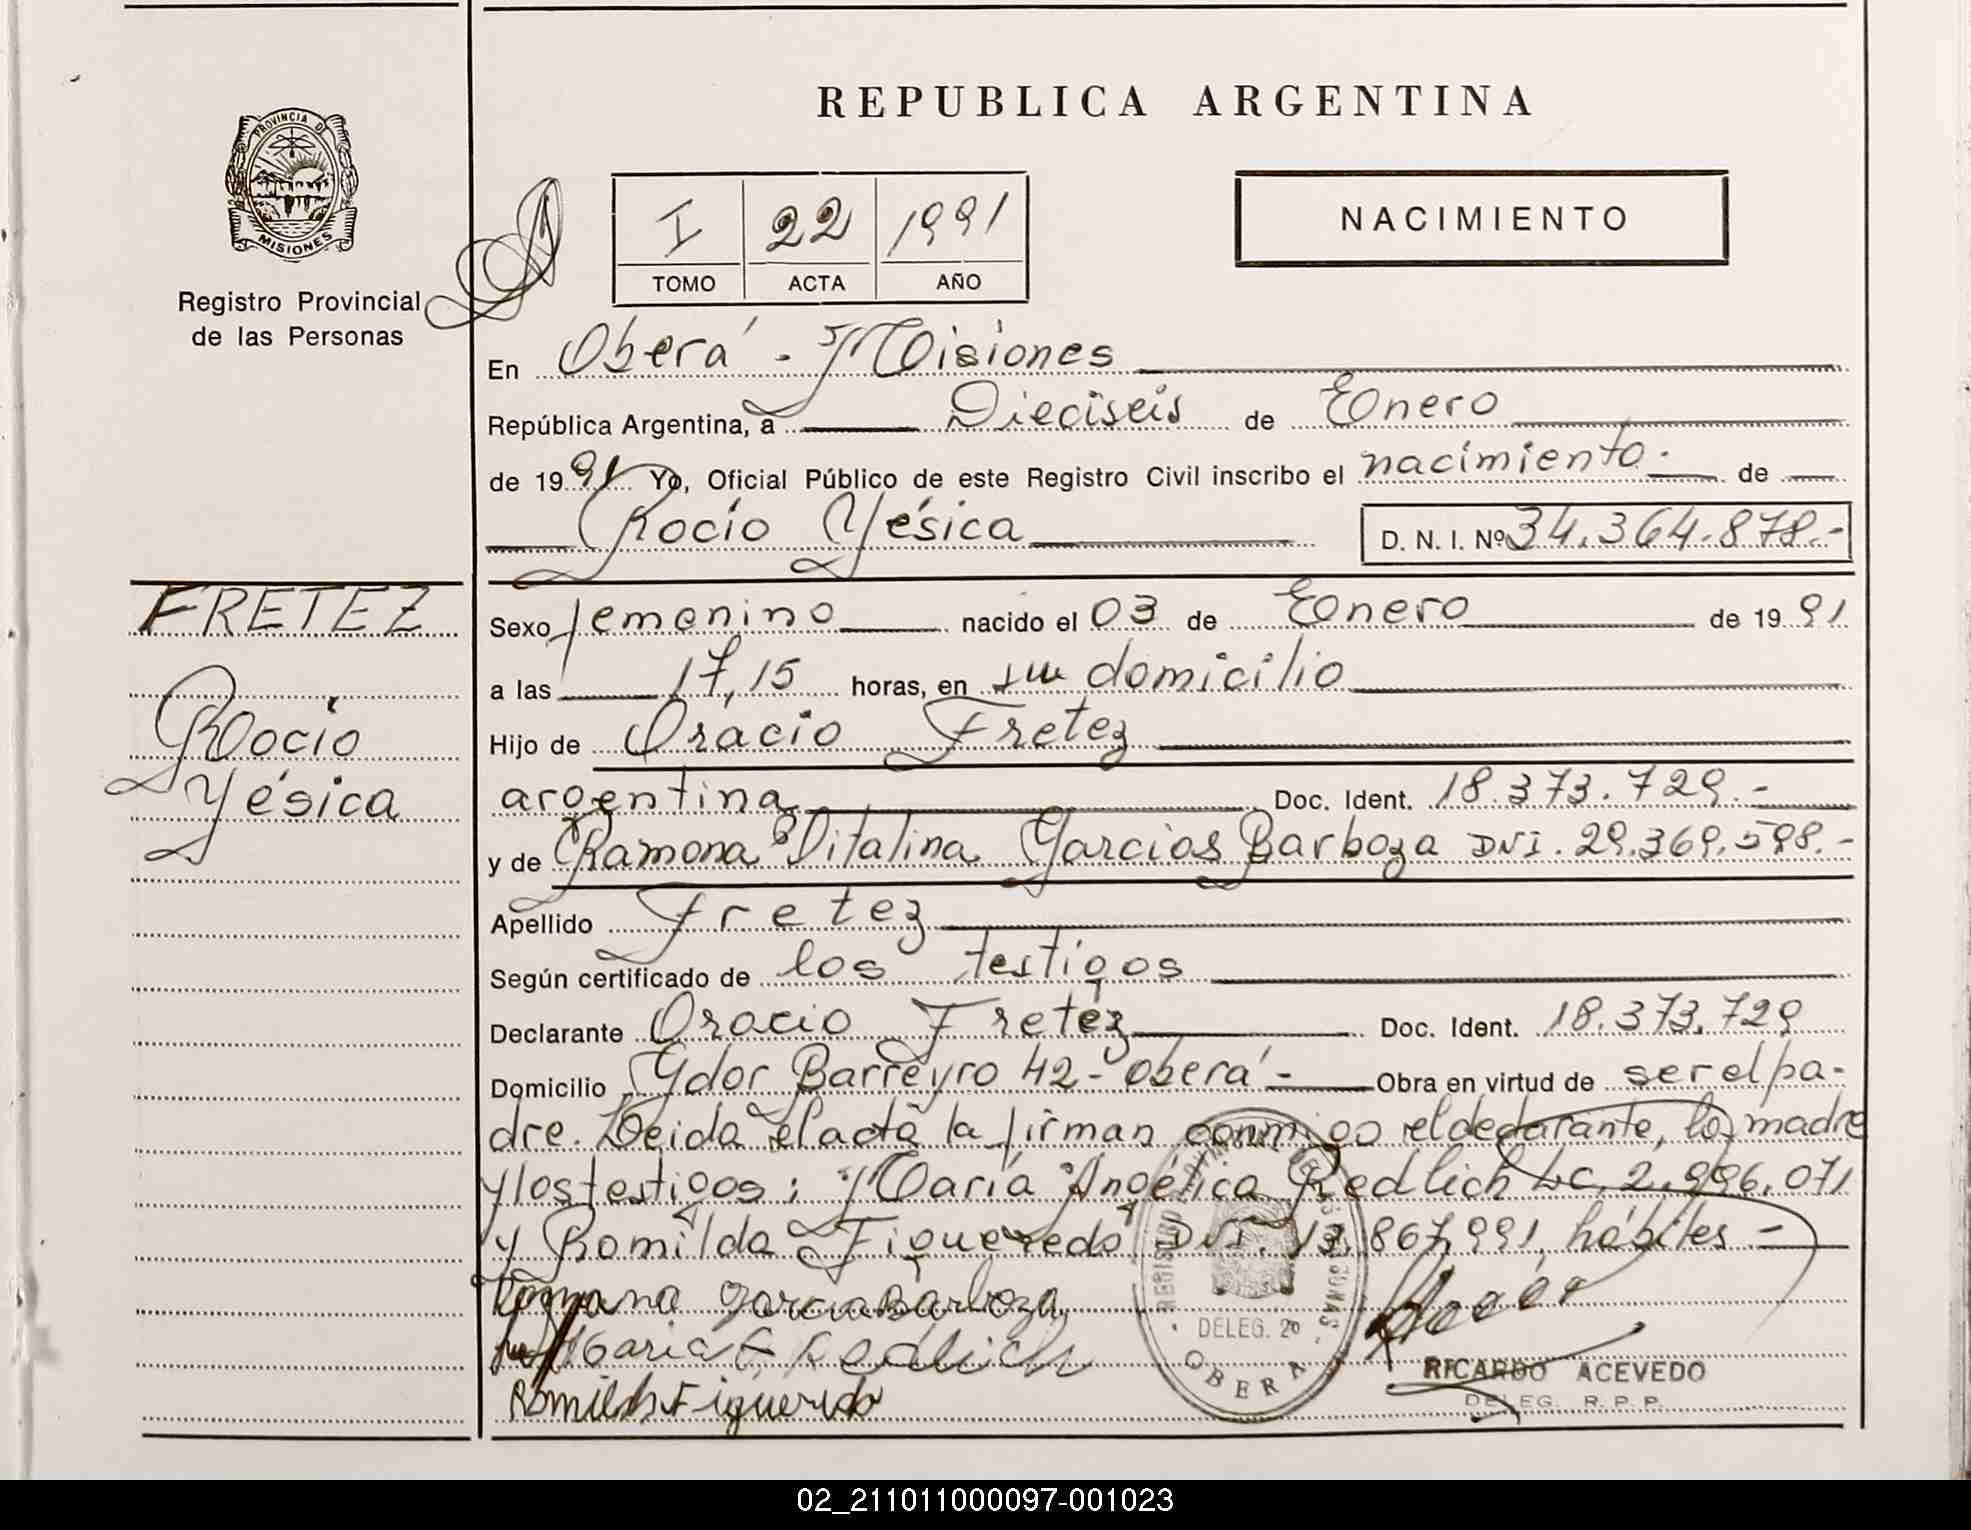 REPUBLICA ARGENTINA
PROVINCIA DE
MISIONES
Registro Provincial
de las Personas
I 22 1991
TOMO ACTA AÑO
NACIMIENTO
En Oberá - Misiones
República Argentina, a Dieciseis de Enero
de 1991 Yo, Oficial Público de este Registro Civil inscribo el nacimiento. de
Rocío Yésica D. N. I. Nº 34.364.878.-
FRETEZ
Rocío
Yésica
Sexo femenino nacido el 03 de Enero de 1991
a las 17,15 horas, en su domicilio
Hijo de Oracio Fretez
argentina Doc. Ident. 18.373.729.-
y de Ramona Vitalina Garcias Barboza DNI. 29.369.598.-
Apellido Fretez
Según certificado de los testigos
Declarante Oracio Fretez Doc. Ident. 18.373.729
Domicilio Ydor Barreyro 42 - Oberá - Obra en virtud de ser el pa-
dre. Leida el acta la firman conmigo el declarante, la madre
y los testigos: María Angélica Redlich LC. 2.996.071
y Romilda Figueredo DNI. 13.867.991, hábiles -
Romana Garcia Barboza
Maria A Redlich
Romilda Figueredo
REGISTRO PROVINCIAL DE LAS PERSONAS
DELEG. 2º
OBERA
RICARDO ACEVEDO
DELEG. R. P. P.
02_211011000097-001023